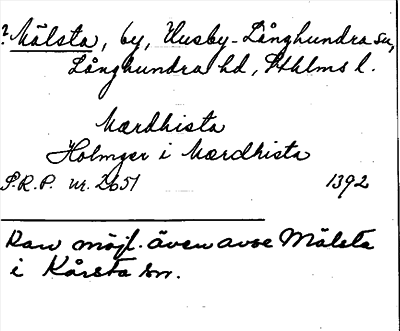 ? Mälsta, by, Husby-Långhundra sn,
Långhundra hd, Sthlms l.
Mærdhista
Holmger i Mærdhista
S.R.P. nr. 2651 1392
Kan möjl. även avse Mälsta
i Kårsta sn.